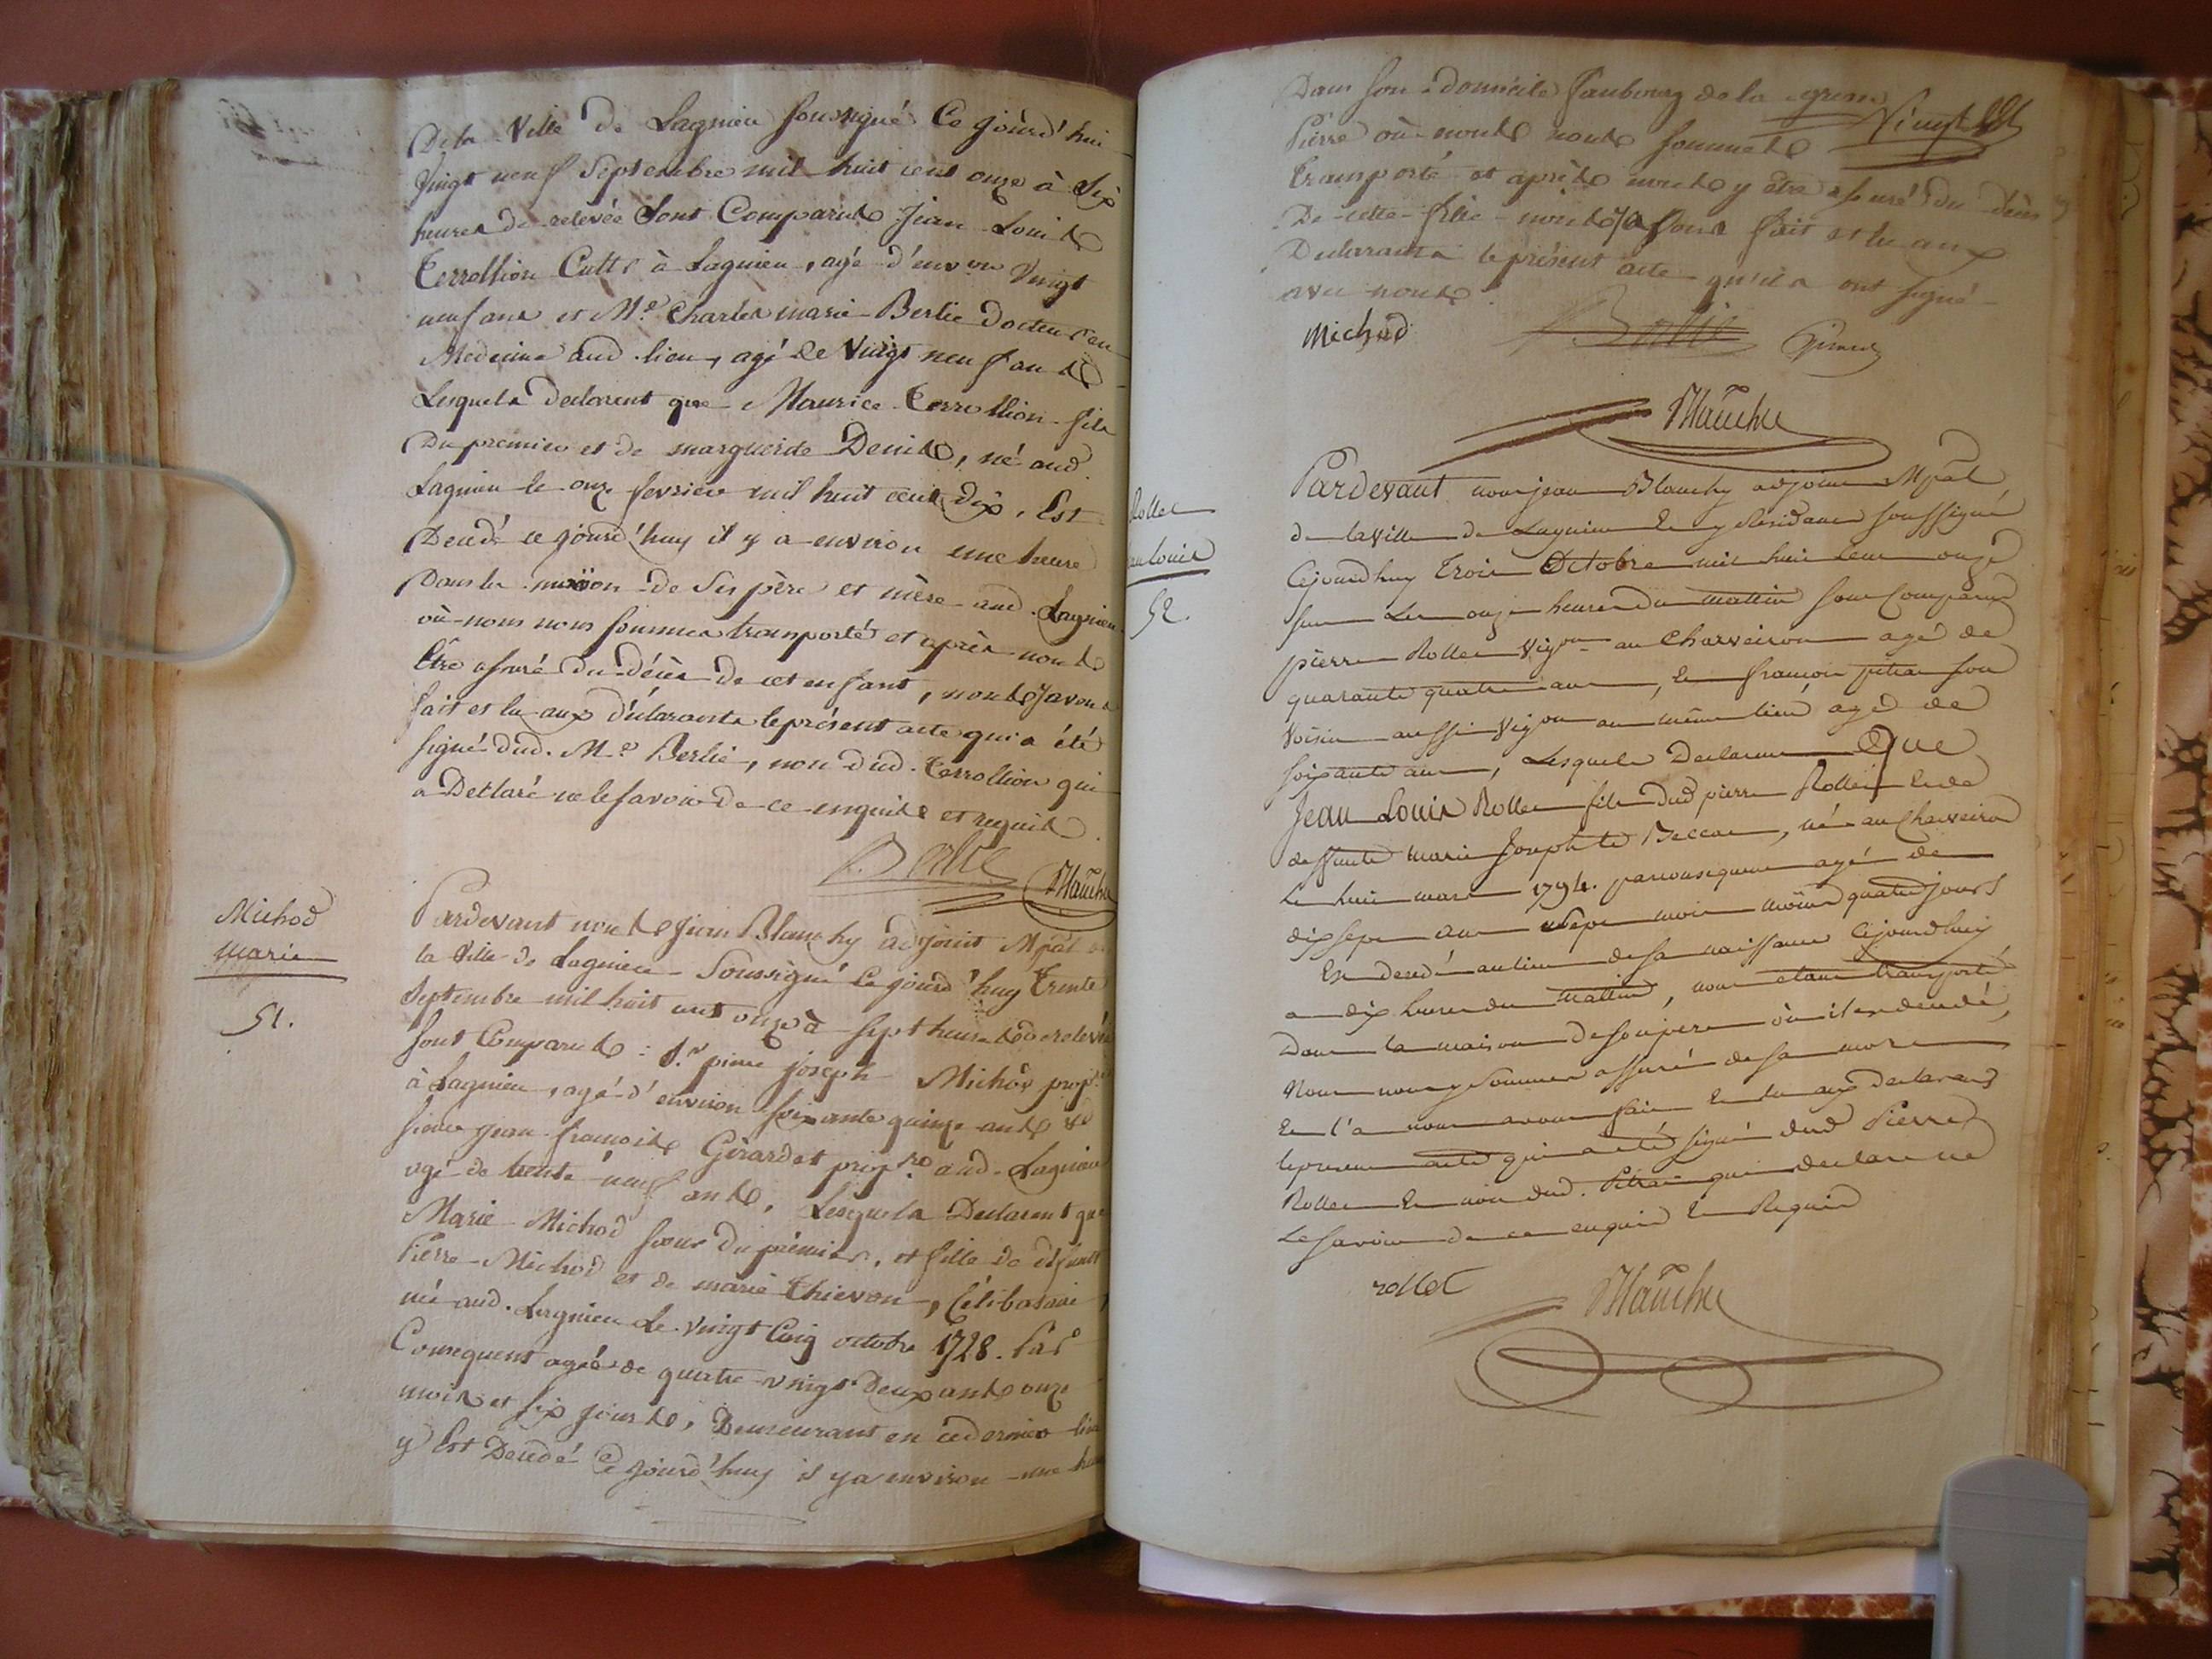 De la Ville de Lagnieu soussigné Ce jourd'hui
Vingt neuf Septembre mil huit cent onze à Six
heures de relevée Sont Comparus Jean Louis
Terrollion Cultr à Lagnieu, agé d'environ Vingt
neuf ans et Mr Charles marie Berlie docteur en
Medecine aud. lieu, agé de Vingt neuf ans
Lesquels declarent que Maurice Terrollion fils
Du premier et de marguerite Denis, né aud.
Lagnieu le onze fevrier mil huit cent dix, Est
Decedé ce jourd'huy il y a environ une heure
Dans la maison de Ses père et mère aud. Lagnieu
où nous nous sommes transporté et après nous
Être assuré du décès de cet enfant, nous avons
fait et lu aux déclarants le présent acte qui a été
signé dud. Mr Berlié, non dud. Terrollion qui
a Declaré ne le savoir de ce enquis et requis.
Berlie Blanchy
Michod
marie
51.
Pardevant nous Jean Blanchy adjoint Mpâl de
la Ville de Lagnieu Soussigné Ce jourd'huy Trente
Septembre mil huit cent onze à sept heures de relevée
Sont Comparus : Sr pierre joseph Michod propre
à Lagnieu, agé d'environ soixante quinze ans &
sieur jean françois Girardet propre aud. Lagnieu
agé de trente neuf ans, Lesquels Declarent que
Marie Michod soeur du prémier, et fille de defunt
Pierre Michod et de marie Thievon, Célibataire,
née aud. Lagnieu Le vingt Cinq octobre 1728. Par
Consequent agée de quatre vingt Deux ans onze
mois et six jours, Demeurant en ce dernier lieu
y Est Decedé Ce jourd'huy il y a environ une heure
Dans son domicile faubourg de la grosse
Vingt
Pierre où nous nous sommes
transporté et après nous y être assuré du décès
De cette fille nous avons fait et lu aux
Declarants le présent acte qu'ils ont signé
avec nous.
Michod Berlie
Blanchy
Rollet
jean Louis
52.
Pardevant nous jean Blanchy adjoint Mpâl
de la Ville de Lagnieu En y Residance soussigné
Cejourdhuy Trois Octobre mil huit Cent onze
sur Les onze heures du mattin sont Comparus
pierre Rollet Vigon au Charveiron agé de
quarante quatre ans, Et françois son
Voisin aussi Vigon au même lieu agé de
soixante ans, Lesquels Declarent Que
Jean Louis Rollet fils dud pierre Rollet Et de
deffunte marie Josephte Beccat, né au Charveiron
Le huit mars 1794. par consequent agé de
dix sept ans sept mois moins quatre jours
Est decedé au lieu de sa naissance Cejourdhuy
a dix heures du mattin, nous etant transporté
dans la maison de son pere où il est decedé,
Nous nous y sommes assuré de sa mort
Et l'a nous avons fait Et lu aux declarants
le present acte qui a été signé dud Pierre
Rollet Et non dud. qui declare ne
Le savoir de ce enquis Et Requis
rollet Blanchy